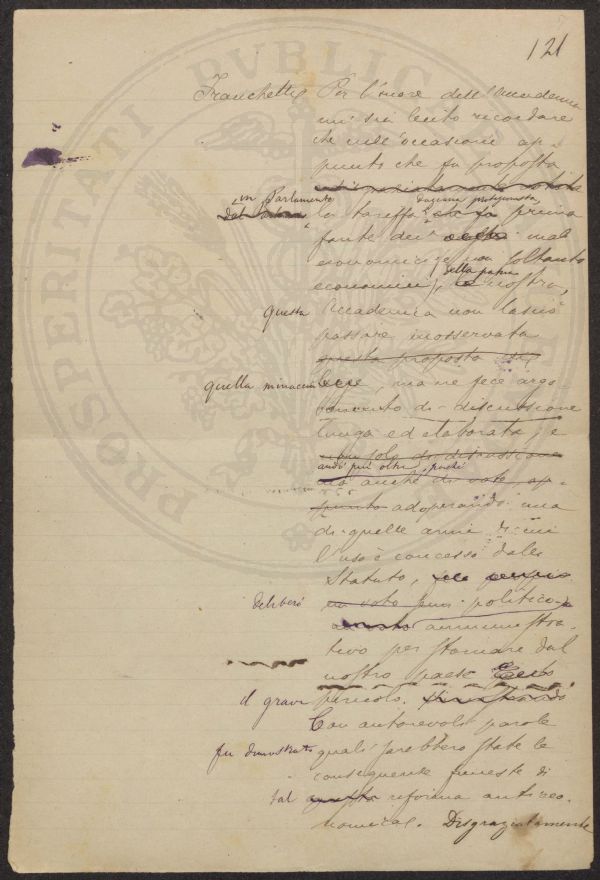 121
Franchetti Per l'onore dell'Accademia
mi sia lecito ricordare
che nell'occasione ap-
punto che fu proposta
in Parlamento
la tariffa prima
doganale protezionista,
fonte dei mali
economici (e non soltanto
economici), della patria nostra,
questa Accademia non lasciò
passare inosservata
questa proposta
quella minaccia legge, ma ne fece argo-
mento di discussione
lunga ed elaborata, e
non solo di discussione
andò più oltre, poichè
ma anche di voto ap-
punto adoperando una
di quelle armi di cui
l'uso è concesso dallo
Statuto,
deliberò un voto politico
amministra-
tivo per stornare dal
nostro paese
il grave pericolo.
Con autorevoli parole
fu dimostrato quali sarebbero state le
conseguenze funeste di
tal questa riforma antieco-
nomica. Disgraziatamente
PROSPERITATI PVBLICAE